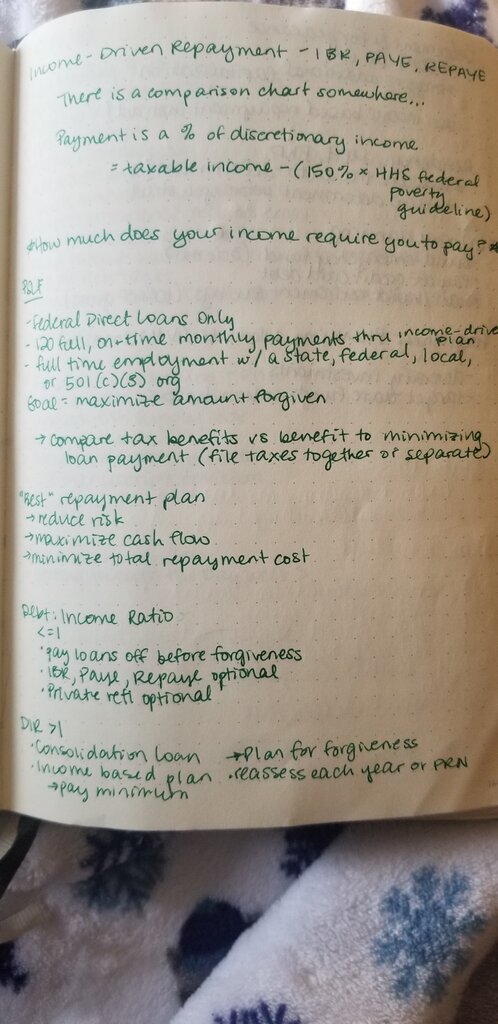 Income-Driven Repayment - IBR, PAYE, REPAYE
There is a comparison chart somewhere...
Payment is a % of discretionary income
= taxable income - (150% * HHS federal
poverty
guideline)
*How much does your income require you to pay?*
PSLF
- Federal Direct Loans Only
- 120 full, on-time monthly payments thru income-drive
plan
- full time employment w/ a state, federal, local,
or 501(c)(3) org
Goal = maximize amount forgiven
→ compare tax benefits vs benefit to minimizing
loan payment (file taxes together or separate)
"Best" repayment plan
→ reduce risk
→ maximize cash flow
→ minimize total repayment cost
Debt: Income Ratio
<=1
· pay loans off before forgiveness
· IBR, Paye, Repaye optional
· Private refi optional
DIR >1
· Consolidation loan → Plan for forgiveness
· Income based plan · reassess each year or PRN
→ pay minimum